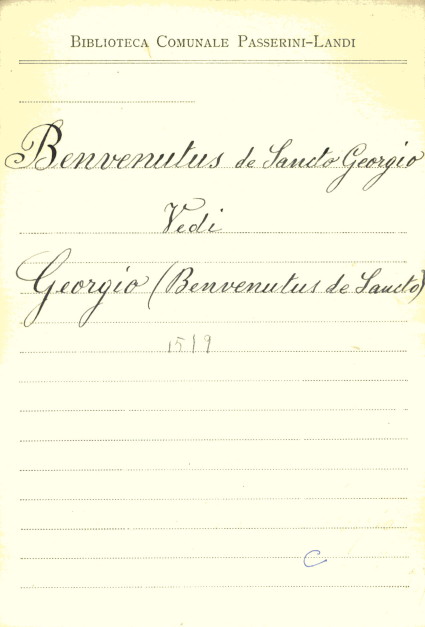 BIBLIOTECA COMUNALE PASSERINI-LANDI
Benvenutus de Sancto Georgio
Vedi
Georgio (Benvenutus de Sancto)
1519
C